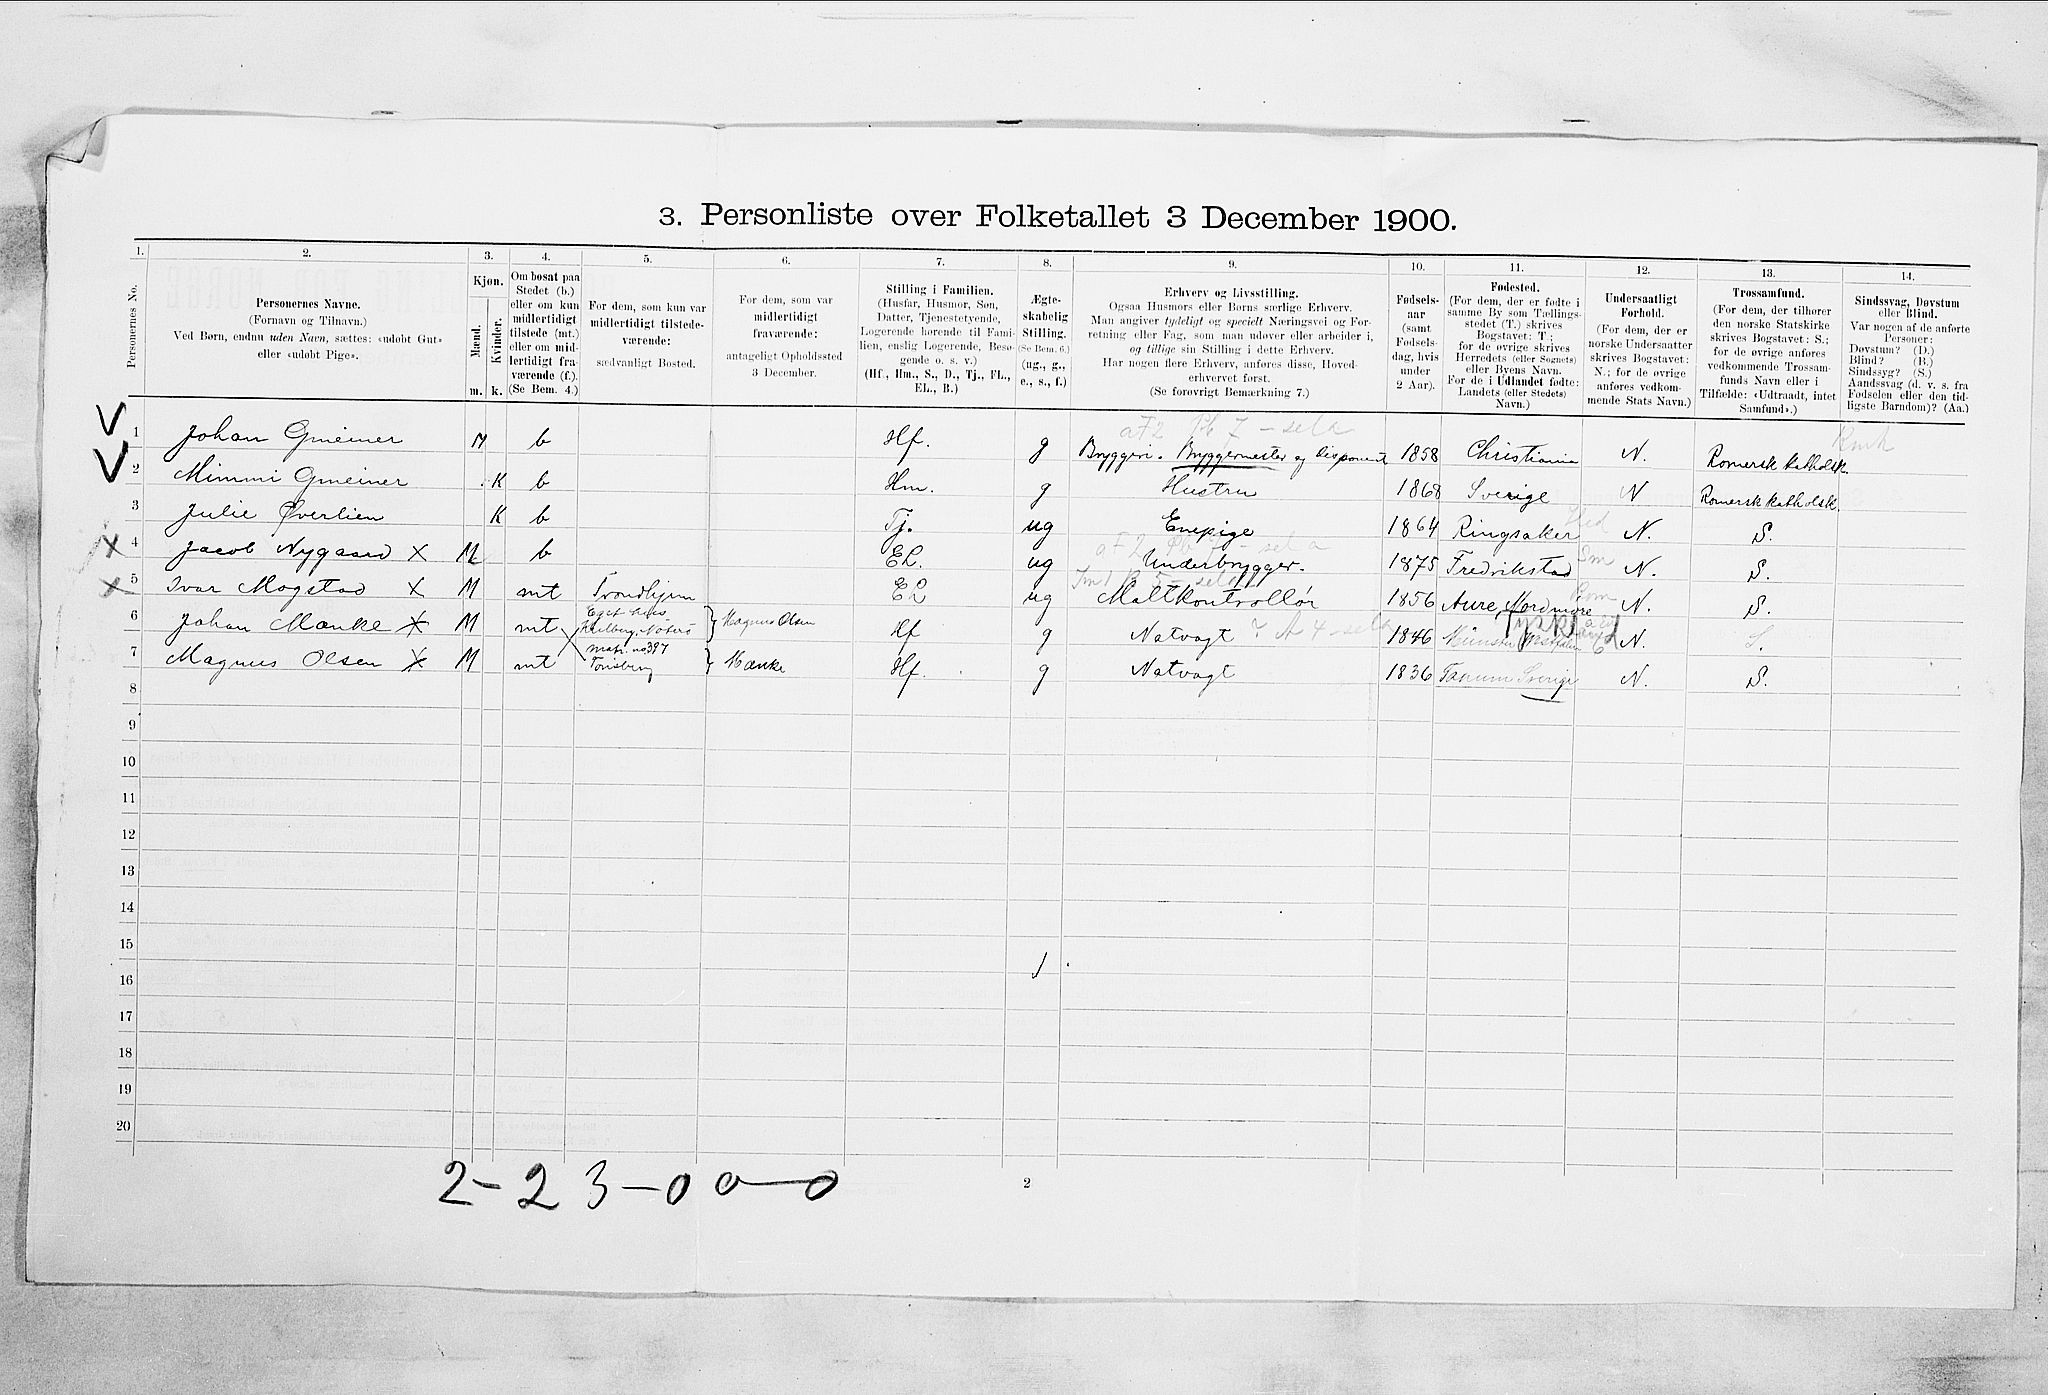 3. Personliste over Folketallet 3 December 1900.
1. 2. 3. 4. 5. 6. 7. 8. 9. 10. 11. 12. 13. 14.
Personernes No.
Personernes Navne.
(Fornavn og Tilnavn.)
Ved Børn, endnu uden Navn, sættes: «udøbt Gut»
eller «udøbt Pige».
Kjøn.
Mænd.
Kvinder.
m. k.
Om bosat paa
Stedet (b.)
eller om kun
midlertidigt
tilstede (mt.)
eller om mid-
lertidigt fra-
værende (f.)
(Se Bem. 4.)
For dem, som kun var
midlertidigt tilstede-
værende:
sædvanligt Bosted.
For dem, som var
midlertidigt
fraværende:
antageligt Opholdssted
3 December.
Stilling i Familien.
(Husfar, Husmor, Søn,
Datter, Tjenestetyende,
Logerende hørende til Fami-
lien, enslig Logerende, Besø-
gende o. s. v.)
(Hf., Hm., S., D., Tj., FL.,
EL., B.)
Ægte-
skabelig
Stilling.
(Se Bem. 6.)
(ug., g.,
e., s., f.)
Erhverv og Livsstilling.
Ogsaa Husmors eller Børns særlige Erhverv.
Man angiver tydeligt og specielt Næringsvei og For-
retning eller Fag, som man udøver eller arbeider i,
og tillige sin Stilling i dette Erhverv.
Har nogen flere Erhverv, anføres disse, Hoved-
erhvervet først.
(Se forøvrigt Bemærkning 7.)
Fødsels-
aar
(samt
Fødsels-
dag, hvis
under
2 Aar).
Fødested.
(For dem, der er fødte i
samme By som Tællings-
stedet (T.) skrives
Bogstavet: T.;
for de øvrige skrives
Herredets (eller Sognets)
eller Byens Navn.
For de i Udlandet fødte:
Landets (eller Stedets)
Navn.)
Undersaatligt
Forhold.
(For dem, der er
norske Undersaatter
skrives Bogstavet:
N.; for de øvrige
anføres vedkom-
mende Stats Navn.)
Trossamfund.
(For dem, der tilhører
den norske Statskirke
skrives Bogstavet: S.;
for de øvrige anføres
vedkommende Trossam-
funds Navn eller i
Tilfælde: «Udtraadt, intet
Samfund».)
Sindssvag, Døvstum
eller Blind.
Var nogen af de anførte
Personer:
Døvstum? (D.)
Blind? (B.)
Sindssyg? (S.)
Aandssvag (d. v. s. fra
Fødselen eller den tid-
ligste Barndom)? (Aa.)
V 1 Johan Gmeiner M b Hf. g Bryggeri. Bryggermester og disponent 1858 Christiania N. Romersk katholsk.
V 2 Mimmi Gmeiner K b Hm. g Hustru 1868 Sverige N Romersk katholsk.
3 Julie Øverlien K b Tj. ug Enepige 1864 Ringsaker N. S.
X 4 Jacob Nygaard X M b EL. ug Underbrygger. 1875 Fredrikstad N. S.
X 5 Ivar Mogstad X M mt Trondhjem EL ug Maltkontrollør 1856 Aure, Nordmøre N. S.
6 Johan Manke X M mt Hf. g Natvagt 1846 Münster Westfalen N. S.
matr. no 397
Magnus Olsen
7 Magnus Olsen X M mt Tønsberg Manke Hf. g Natvagt 1836 Tanum Sverige N. S.
8
9
10
11
12
13
14
15
16
17
18
19
20
2-23-0 0-0
2